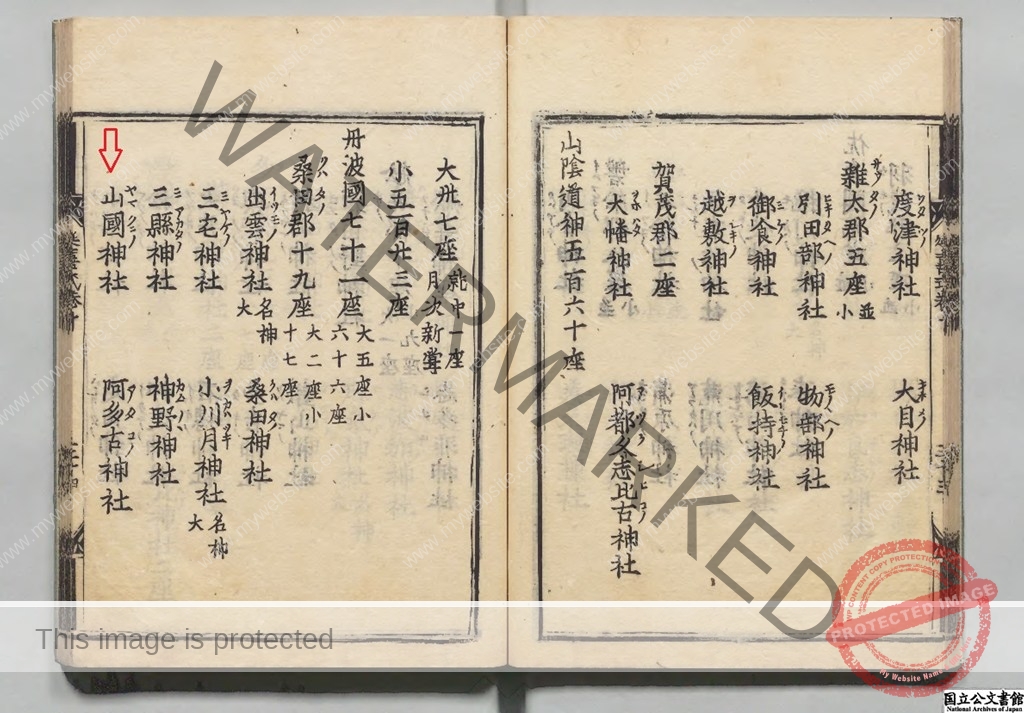 度津神社　大目神社
雜太郡五座並小
引田部神社　物部神社
御食神社　飯持神社
越敷神社
賀茂郡二座
大幡神社　阿都久志比古神社
山陰道神五百六十座
大卅七座就中一座月次新嘗
小五百廿三座
丹波國七十一座大五座小六十六座
桑田郡十九座大二座小十七座
出雲神社名神大　桑田神社
三宅神社　小川月神社名神大
三縣神社　神野神社
山國神社　阿多古神社
WATERMARKED
This image is protected
COPY PROTECTION
PROTECTED IMAGE
My Website Name
国立公文書館
National Archives of Japan